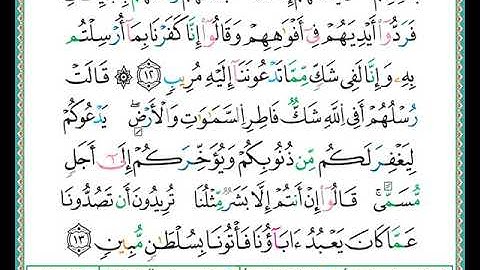 فَرَدُّوٓاْ أَيْدِيَهُمْ فِىٓ أَفْوَٰهِهِمْ وَقَالُوٓاْ إِنَّا كَفَرْنَا بِمَآ أُرْسِلْتُم
بِهِۦ وَإِنَّا لَفِى شَكٍّ مِّمَّا تَدْعُونَنَآ إِلَيْهِ مُرِيبٍ ١٢ ۞ قَالَتْ
رُسُلُهُمْ أَفِى ٱللَّهِ شَكٌّ فَاطِرِ ٱلسَّمَٰوَٰتِ وَٱلْأَرْضِ يَدْعُوكُمْ
لِيَغْفِرَ لَكُم مِّن ذُنُوبِكُمْ وَيُؤَخِّرَكُمْ إِلَىٰٓ أَجَلٍ
مُّسَمًّى قَالُوٓاْ إِنْ أَنتُمْ إِلَّا بَشَرٌ مِّثْلُنَا تُرِيدُونَ أَن تَصُدُّونَا
عَمَّا كَانَ يَعْبُدُ ءَابَآؤُنَا فَأْتُونَا بِسُلْطَٰنٍ مُّبِينٍ ١٣